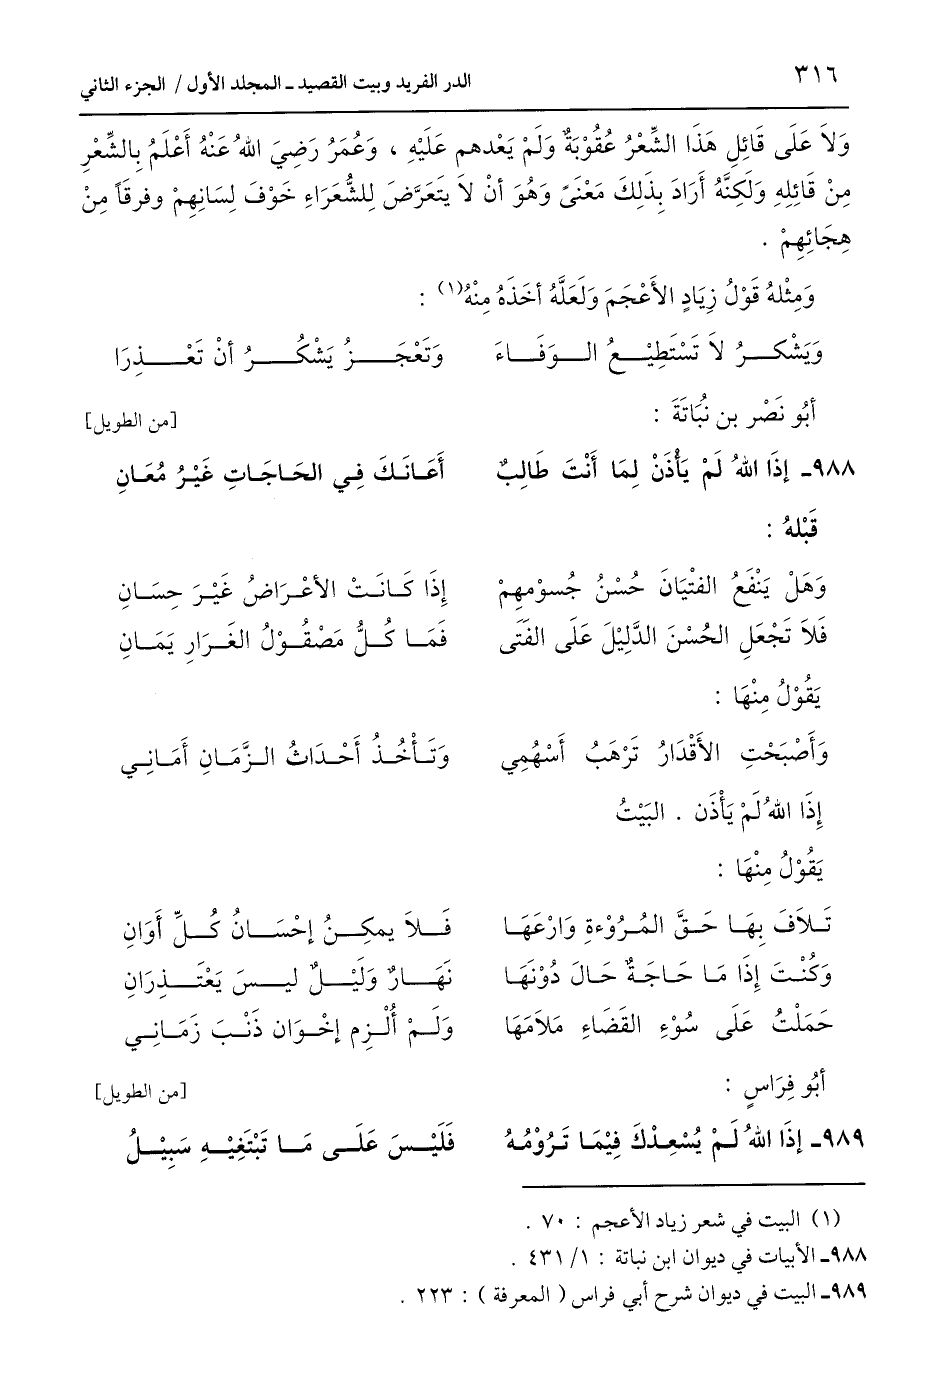 ٣١٦
الدر الفريد وبيت القصيد ـ المجلد الأول / الجزء الثاني
وَلاَ عَلَى قَائِلِ هَذَا الشِّعْرُ عُقُوبَةٌ وَلَمْ يَعْدهم عَلَيْهِ ، وَعُمَرُ رَضِيَ اللهُ عَنْهُ أَعْلَمُ بِالشِّعْرِ
مِنْ قَائِلِهِ وَلَكِنَّهُ أَرَادَ بِذَلِكَ مَعْنَىً وَهُوَ أنْ لاَ يَتَعَرَّضَ لِلشُّعَرَاءِ خَوْفَ لِسَانِهِمْ وفرقَاً مِنْ
هِجَائِهِمْ .
وَمِثْلهُ قَوْلُ زِيَادٍ الأَعْجَمَ وَلَعَلَّهُ أخَذَهُ مِنْهُ(١) :
وَيَشْكرُ لاَ تَسْتَطِيْعُ الوَفَاءَ وَتَعْجَزُ يَشْكُرُ أنْ تَعْذِرَا
أبُو نَصْر بن نُبَاتَةَ : [من الطويل]
٩٨٨ـ إذَا اللهُ لَمْ يَأْذَنْ لِمَا أَنْتَ طَالِبٌ أَعَانَكَ فِي الحَاجَاتِ غَيْرُ مُعَانِ
قَبْلهُ :
وَهَلْ يَنْفَعُ الفتْيَانَ حُسْنُ جُسوْمِهِمْ إذَا كَانَتْ الأعْرَاضُ غَيْرَ حِسَانِ
فَلاَ تَجْعَلِ الحُسْنَ الدَّلِيْلَ عَلَى الفَتَى فَمَا كُلُّ مَصْقُوْلُ الغَرَارِ يَمَانِ
يَقُوْلُ مِنْهَا :
وَأصْبَحْتِ الأَقْدَارُ تَرْهَبُ أسْهُمِي وَتَأْخُذُ أحْدَاثُ الزَّمَانِ أمَانِي
إذَا اللهُ لَمْ يَأذَن . البَيْتُ
يَقُوْلُ مِنْهَا :
تَلاَفَ بِهَا حَقَّ المُرُوْءةِ وَارْعَهَا فَلاَ يمكِنُ إحْسَانُ كُلِّ أوَانِ
وَكُنْتَ إذَا مَا حَاجَةٌ حَالَ دُوْنَهَا نَهَارٌ وَلَيْلٌ ليسَ يَعْتَذِرَانِ
حَمَلْتُ عَلَى سُوْءِ القَضَاءِ مَلاَمَهَا وَلَمْ أُلْزِم إخْوَان ذَنْبَ زَمَانِي
أبُو فِرَاسٍ : [من الطويل]
٩٨٩ـ إذَا اللهُ لَمْ يُسْعِدْكَ فِيْمَا تَرُوْمُهُ فَلَيْسَ عَلَى مَا تَبْتَغِيْهِ سَبِيْلُ
(١) البيت في شعر زياد الأعجم : ٧٠ .
٩٨٨ـ الأبيات في ديوان ابن نباتة : ١/ ٤٣١ .
٩٨٩ـ البيت في ديوان شرح أبي فراس ( المعرفة ) : ٢٢٣ .